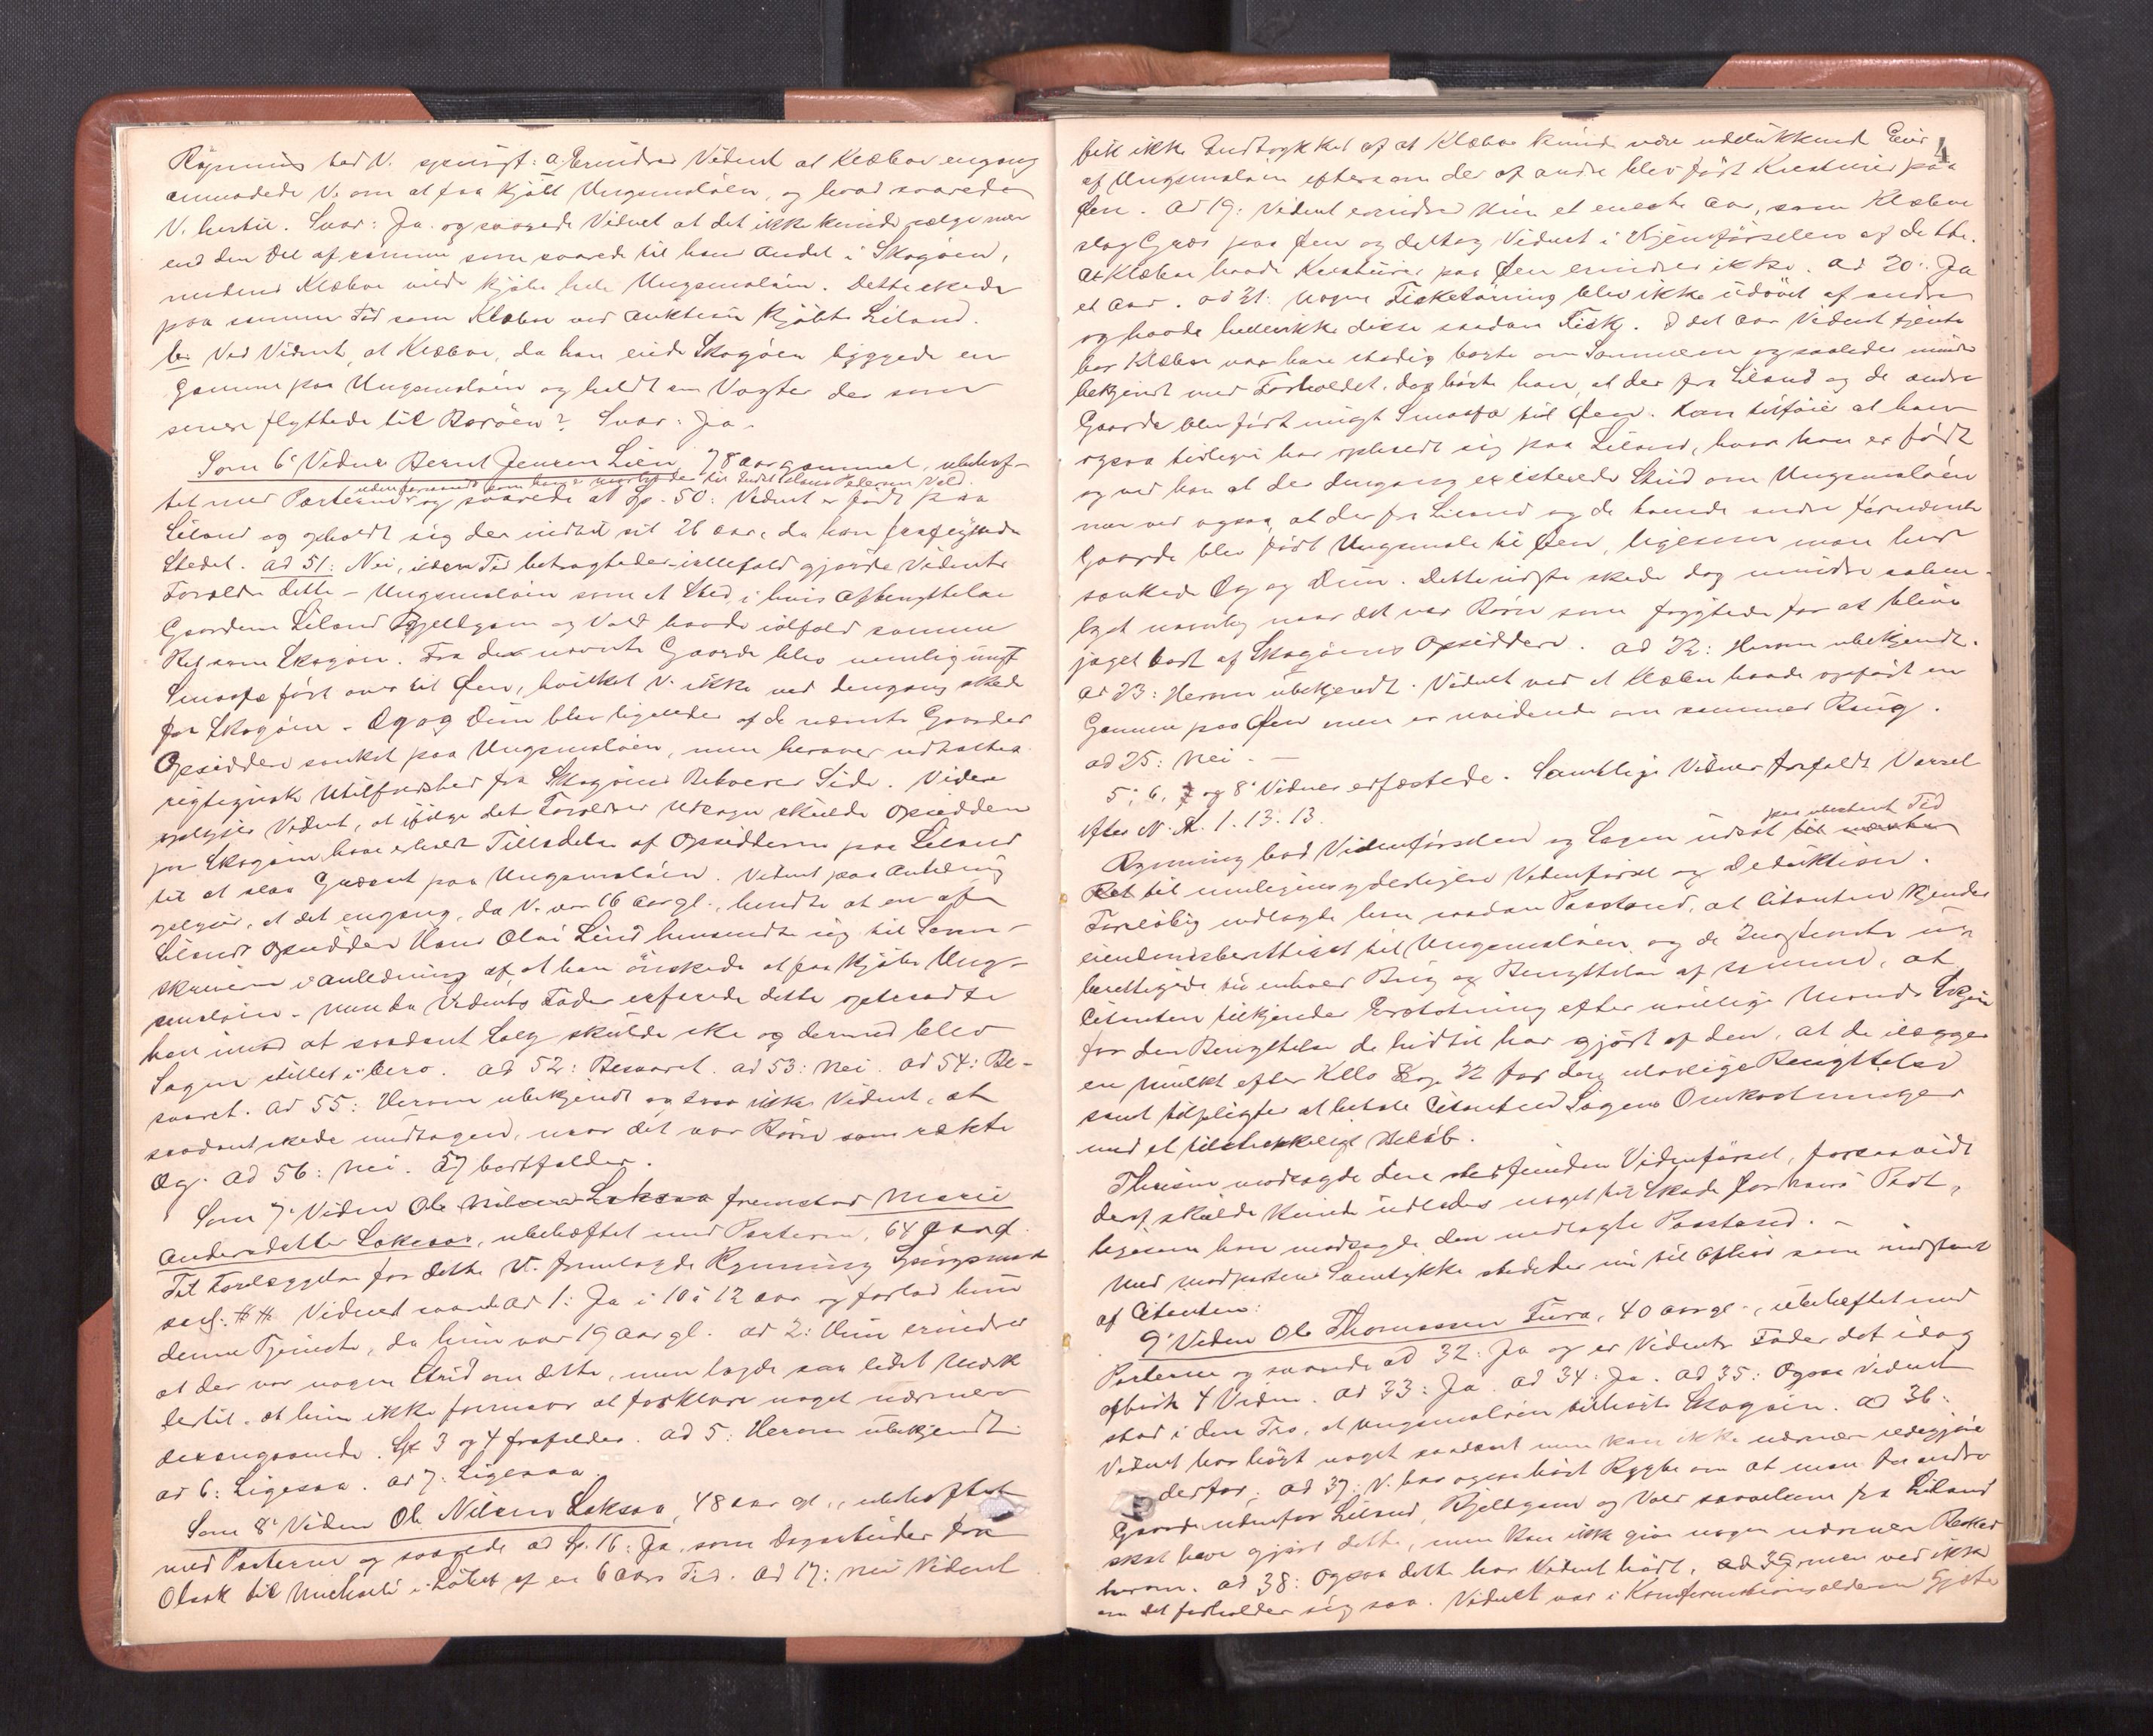 Rynning bad V. spurgt: a, Erindrer Vidnet at Klæboe engang
anmodede V. om at faa kjøbt Ungsmaløen, og hvad svarede
V. hertil. Svar: Ja. og svarede Vidnet at det ikke kunde sælge mer
end den Del af samme som svarede til hans Andel i Skogøen,
medens Klæboe vilde kjøbe hele Ungsmaløen. Dette skede
paa samme Tid som Klæboe ved Auktion kjøbte Liland.
b. Ved Vidnet, at Klæboe, da han eiede Skogøen byggede en
Gamme paa Ungsmaløen og holdt en Vogter der som
senere flyttede til Barøen? Svar: Ja.
Som 6' Vidne Bernt Jensen Lien, 78 aar gammel, ubehæf-
tet med Parterne og svarede at Sp. 50: Vidnet er født paa
Liland og opholdt sig der indtil sit 26 aar, da han fraflyttede
Stedet. ad 51: Nei, i den Tid betragtedes, iallefald gjorde Vidnets
Forældre dette – Ungsmaløen som et Sted, i hvis Afbenyttelse
Gaardene Liland Kjeldgam og Vold havde ialfald samme
Ret som Skogøen. Fra de nævnte Gaarde blev nemlig ungt
Smaafæ ført over til Øen, hvilket V. ikke ved dengang skede
fra Skogøen. Æg og Dun blev ligeledes af de nævnte Gaardes
Opsiddere sanket paa Ungsmaløen, men herover udtaltes
rigtignok Utilfredshed fra Skogøens Beboeres Side. Videre
oplyser Vidnet, at ifølge dets Forældres Udsagn skulde Opsidderne
paa Skogøen have erhvervet Tilladelse af Opsidderne paa Liland
til at slaa Græsset paa Ungsmaløen. Vidnet paa Anledning
oplyser, at det engang, da V. var 16 aar gl., hændte at en af
Lilands Opsiddere Hans Olai Lind henvendte sig til Soren-
skriveren i Anledning af, at han ønskede at faa kjøbe Ung-
smaløen. Men da Vidnets Fader erfarede dette opløste
han imod at saadant Salg skulde ske og dermed blev
Sagen stillet i bero. ad 52: Besvaret. ad 53: Nei. ad 54: Be-
svaret. ad 55: Herom ubekjendt og tror ikke Vidnet, at
saadant skede undtagen, naar det var Børn som rakte
Æg. ad 56: Nei. 57 bortfalder.
Som 7' Vidne Ole Nilsen Laksaa fremstod Marie
Andersdatter Laksaa, ubehæftet med Parterne, 64 aar gl.
Til Forelæggelse for dette V. fremlagde Rynning Spørgsmaal
saal. ## Vidnet svarede ad 1: Ja i 10 à 12 aar og forlod hun
denne Tjeneste, da hun var 19 aar gl. ad 2: Hun erindrer
at der var nogen Strid om dette, men lagde saa lidet Mærke
dertil, at hun ikke formaar at forklare noget nærmere
derangaaende. Sp. 3 og 4 frafaldes. ad 5: Herom ubekjendt.
ad 6: Ligesaa. ad 7: Ligesaa.
Som 8' Vidne Ole Nilsen Laksaa, 48 aar gl., ubehæftet
med Parterne og svarede ad Sp. 16: Ja, som Dagarbeider fra
Olsok til Mikaeli i Løbet af en 6 aars Tid. ad 17: Nei Vidnet
4
fik ikke Indtrykket af at Klæboe kunde være udelukkende Eier
af Ungsmaløen eftersom der af andre blev ført Kreaturer paa
Øen. ad 19: Vidnet erindrer kun et eneste Aar, som Klæboe
slog Græs paa Øen og deltog Vidnet i Hjemførselen af dette.
At Klæboe havde Kreaturer paa Øen erindres ikke. ad 20: Ja
et aar. ad 21: Nogen Fisketørring blev ikke udøvet af andre
og havde heller ikke disse saadan Fisk. I det aar Vidnet tjente
hos Klæboe var han stadig borte om Sommeren og saaledes mindre
bekjendt med Forholdet, dog hørte han, at der fra Liland og de andre
Gaarde blev ført ungt Smaafæ til Øen. Han tilføier at han
ogsaa tidligere har opholdt sig paa Liland, hvor han er født
og ved han at der dengang existerede Strid om Ungsmaløen
man ved ogsaa, at der fra Liland og de tvende andre førnævnte
Gaarde blev ført Ungsmale til Øen, ligesom man her
sankede Æg og Dun. Dette sidste skede dog mindre aaben-
lyst navnlig naar det var Børn som frygtede for at blive
jaget bort af Skogøens Opsiddere. ad 22: Herom ubekjendt.
ad 23: Herom ubekjendt. Vidnet ved at Klæboe havde opført en
Gamme paa Øen men er uvidende om sammes Brug.
ad 25: Nei. –
5', 6, 7 og 8' Vidner edfæstede. Samtlige Vidner forfaldt Varsel
efter N. L. 1. 13. 13.
Rynning bad Vidneførslen og Sagen udsat paa ubestemt Tid
til muligens yderligere Vidneførsel og Deduktion.
Foreløbig nedlagde han saadan Paastand, at Citanten kjendes
eiendomsberettiget til Ungsmaløen og de Indstevnte u-
berettigede til enhver Brug og Benyttelse af samme, at
Citanten tilkjendes Erstatning efter uvillige Mænds Skjøn
for den Benyttelse de hidtil har gjort af den, at de ilægges
en Mulkt efter Klls Kap. 22 for den ulovlige Benyttelse
samt tilpligtes at betale Citanten Sagens Omkostninger
med et tilstrækkeligt Beløb.
Thiesen modsagde den stedfundne Vidneførsel, forsaavidt
deraf skulde kunde udledes noget til Skade for hans Part,
ligesom han modsagde den nedlagte Paastand. –
Med Modpartens Samtykke stededes nu til Afhør som indstevnt
af Citanten:
9' Vidne Ole Thomassen Tura, 40 aar gl., ubehæftet med
Parterne og svarede ad 32: Ja og er Vidnets Fader det idag
afhørte 4 Vidne. ad 33: Ja. ad 34: Ja. ad 35: Ogsaa Vidnet
stod i den Tro, at Ungsmaløen tilhørte Skogøen. ad 36:
Vidnet har hørt noget saadant men kan ikke nærmere redegjøre
derfor. ad 37: V. har ogsaa hørt Rygte om at man fra andre
Gaarde udenfor Liland, Kjeldgam og Vold saavelsom fra Liland
skal have gjort dette, men kan ikke give nogen nærmere Besked
herom. ad 38: Ogsaa dette har Vidnet hørt, ad 39, men ved ikke
om det forholder sig saa. Vidnet var i Konfirmationsalderen Gjæter